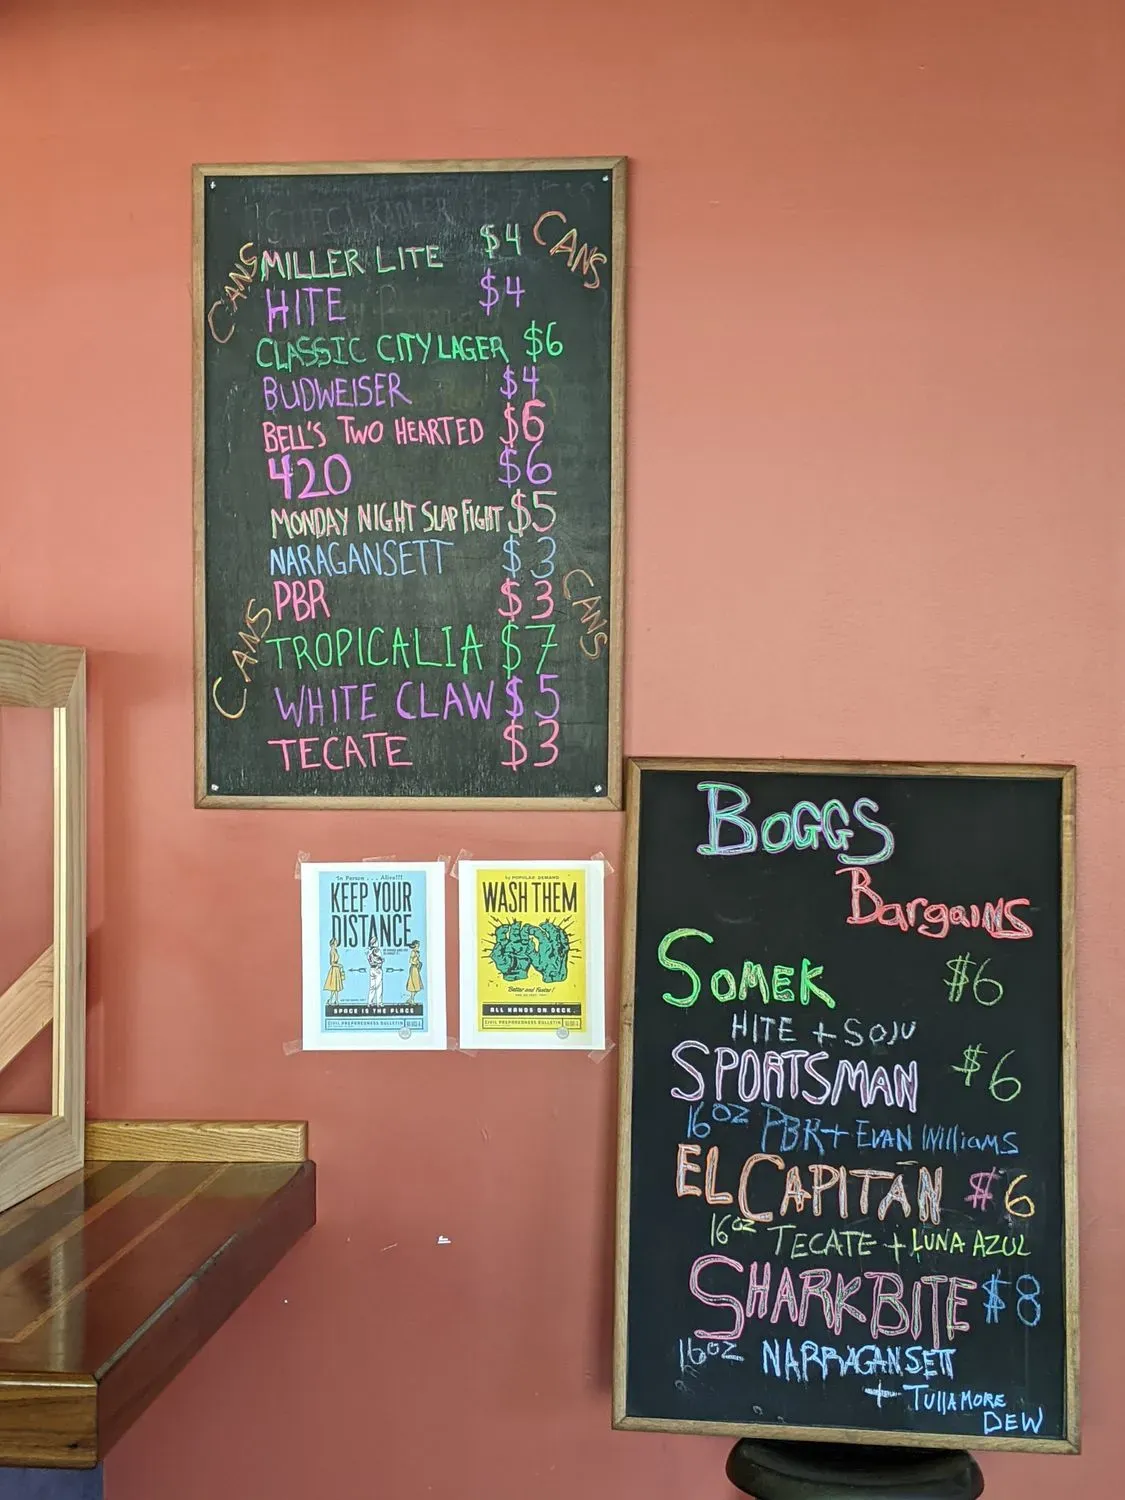 CANS
CANS
MILLER LITE $4
HITE $4
CLASSIC CITY LAGER $6
BUDWEISER $4
BELL'S TWO HEARTED $6
420 $6
MONDAY NIGHT SLAP FIGHT $5
NARAGANSETT $3
PBR $3
CANS
CANS
TROPICALIA $7
WHITE CLAW $5
TECATE $3
BOGGS
BargaiNS
SOMEK $6
HITE + SOJU
SPORTSMAN $6
16OZ PBR + EVAN WilliAMS
EL CAPITÁN $6
16OZ TECATE + LUNA AZUL
SHARKBITE $8
16OZ NARRAGANSETT
+ TUllAMORE
DEW
In Person . . . Alive!!!
KEEP YOUR
DISTANCE
SPACE IS THE PLACE
CIVIL PREPAREDNESS BULLETIN
by POPULAR DEMAND
WASH THEM
Better and Faster!
ALL HANDS ON DECK.
CIVIL PREPAREDNESS BULLETIN